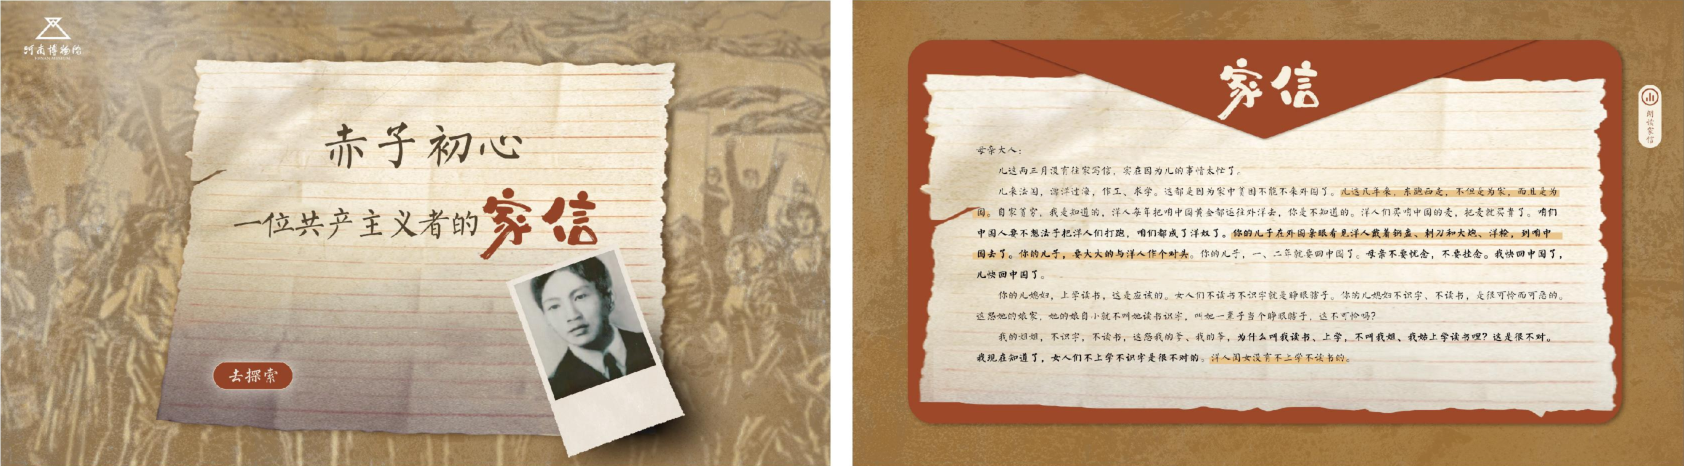 河南博物院
赤子初心
一位共产主义者的家信
去探索
家信
朗读家信
母亲大人：
儿这两三月没有往家写信，实在因为儿的事情太忙了。
儿来法国，漂洋过海，作工、求学。这都是因为家中贫困不能不来外国了。儿这几年来，东跑西走，不但是为家，而且是为
国。自家贫穷，我是知道的，洋人每年把咱中国黄金都运往外洋去，你是不知道的。洋人们买咱中国的麦，把麦就买贵了。咱们
中国人要不想法子把洋人们打跑，咱们都成了洋奴了。你的儿子在外国亲眼看见洋人戴着钢盔、刺刀和大炮、洋枪，到咱中
国去了。你的儿子，要大大的与洋人作个对头。你的儿子，一、二年就要回中国了。母亲不要忧念，不要挂念。我快回中国了，
儿快回中国了。
你的儿媳妇，上学读书，这是应该的。女人们不读书不识字就是睁眼瞎子。你的儿媳妇不识字、不读书，是很可怜而可恶的。
这怨她的娘家，她的娘自小就不叫她读书识字，叫她一辈子当个睁眼瞎子，这不可怜吗？
我的姐姐，不识字，不读书，这怨我的爹、我的爷，为什么叫我读书、上学，不叫我姐、我姑上学读书哩？这是很不对。
我现在知道了，女人们不上学不识字是很不对的。洋人闺女没有不上学不读书的。